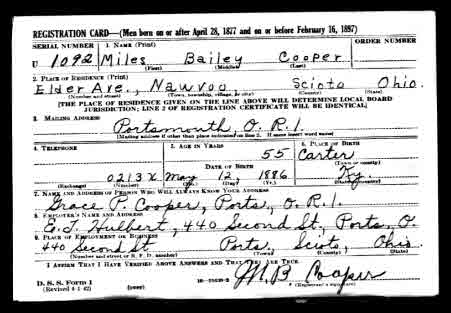 REGISTRATION CARD—(Men born on or after April 28, 1877 and on or before February 16, 1897)
SERIAL NUMBER 1. NAME (Print) ORDER NUMBER
U 1092 Miles Bailey Cooper
(First) (Middle) (Last)
2. PLACE OF RESIDENCE (Print)
Elder Ave., Nauvoo Scioto Ohio.
(Number and street) (Town, township, village, or city) (County) (State)
[THE PLACE OF RESIDENCE GIVEN ON THE LINE ABOVE WILL DETERMINE LOCAL BOARD
JURISDICTION; LINE 2 OF REGISTRATION CERTIFICATE WILL BE IDENTICAL]
3. MAILING ADDRESS
Portsmouth, O. R. 1.
[Mailing address if other than place indicated on line 2. If same insert word same]
4. TELEPHONE 5. AGE IN YEARS 6. PLACE OF BIRTH
55 Carter
DATE OF BIRTH (Town or county)
0213X May 12, 1886 Ky.
(Exchange) (Number) (Mo.) (Day) (Yr.) (State or country)
7. NAME AND ADDRESS OF PERSON WHO WILL ALWAYS KNOW YOUR ADDRESS
Grace P. Cooper, Ports, O. R. 1.
8. EMPLOYER'S NAME AND ADDRESS
E. J. Hulbert, 440 Second St., Ports, O.
9. PLACE OF EMPLOYMENT OR BUSINESS
440 Second St Ports. Scioto, Ohio.
(Number and street or R. F. D. number) (Town) (County) (State)
I AFFIRM THAT I HAVE VERIFIED ABOVE ANSWERS AND THAT THEY ARE TRUE.
D. S. S. Form 1 M B Cooper
(Revised 4-1-42) (over) (Registrant's signature)